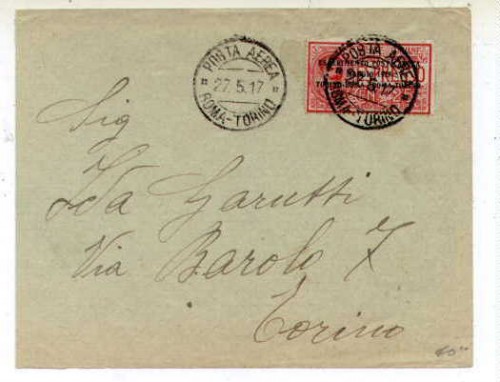 POSTA AEREA
27.5.17
ROMA-TORINO
POSTA AEREA
ROMA-TORINO
Sig
Ida Garutti
Via Barolo 7
Torino